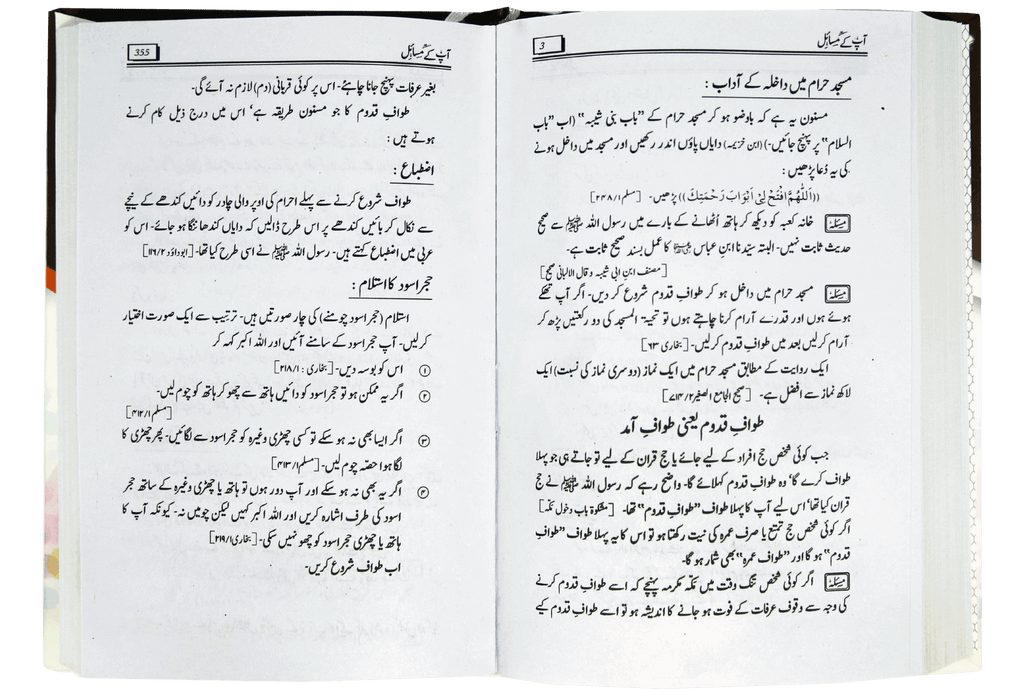 آپ کے مسائل
3
مسجد حرام میں داخلہ کے آداب :
مسنون یہ ہے کہ باوضو ہو کر مسجد حرام کے "باب بنی شیبہ" (اب "باب
السلام" پر پہنچ جائیں۔) (ابن خزیمہ) دایاں پاؤں اندر رکھیں اور مسجد میں داخل ہونے
کی یہ دُعا پڑھیں :
((اَللّٰهُمَّ افْتَحْ لِیْ اَبْوَابَ رَحْمَتِكَ)) پڑھیں۔ [مسلم ۲۴۸/۱]
مسئلہ خانہ کعبہ کو دیکھ کر ہاتھ اُٹھانے کے بارے میں رسول اللہ ﷺ سے صحیح
حدیث ثابت نہیں۔ البتہ سیّدنا ابن عباس رضی اللہ عنہما کا عمل بسند صحیح ثابت ہے۔
[مصنف ابن ابی شیبہ و قال الالبانی صحیح]
مسئلہ مسجد حرام میں داخل ہو کر طوافِ قدوم شروع کر دیں۔ اگر آپ تھکے
ہوئے ہوں اور قدرے آرام کرنا چاہتے ہوں تو تحیۃ المسجد کی دو رکعتیں پڑھ کر
آرام کرلیں بعد میں طوافِ قدوم کرلیں۔ [بخاری ۶۳]
ایک روایت کے مطابق مسجد حرام میں ایک نماز (دوسری نماز کی نسبت) ایک
لاکھ نماز سے افضل ہے۔ [صحیح الجامع الصغیر ۷۱۴/۲]
طوافِ قدوم یعنی طوافِ آمد
جب کوئی شخص حج افراد کے لیے جائے یا حج قران کے لیے تو جاتے ہی جو پہلا
طواف کرے گا' وہ طوافِ قدوم کہلائے گا۔ واضح رہے کہ رسول اللہ ﷺ نے حج
قران کیا تھا' اس لیے آپ کا پہلا طواف "طوافِ قدوم" تھا۔ [مشکوۃ باب دخول مکہ]
اگر کوئی شخص حج تمتع یا صرف عمرہ کی نیت رکھتا ہو تو اس کا یہ پہلا طواف "طوافِ
قدوم" ہو گا اور "طواف عمرہ" بھی شمار ہو گا۔
مسئلہ اگر کوئی شخص تنگ وقت میں مکہ مکرمہ پہنچے کہ اسے طوافِ قدوم کرنے
کی وجہ سے وقوف عرفات کے فوت ہو جانے کا اندیشہ ہو تو اسے طوافِ قدوم کیے
آپ کے مسائل
355
بغیر عرفات پہنچ جانا چاہئے۔ اس پر کوئی قربانی (دم) لازم نہ آئے گی۔
طوافِ قدوم کا جو مسنون طریقہ ہے' اس میں درج ذیل کام کرنے
ہوتے ہیں :
اضطباع :
طواف شروع کرنے سے پہلے احرام کی اوپر والی چادر کو دائیں کندھے کے نیچے
سے نکال کر بائیں کندھے پر اس طرح ڈالیں کہ دایاں کندھا ننگا ہو جائے۔ اس کو
عربی میں اضطباع کہتے ہیں۔ رسول اللہ ﷺ نے اسی طرح کیا تھا۔ [ابوداؤد ۱۱۶/۲]
حجر اسود کا استلام :
استلام (حجر اسود چومنے) کی چار صورتیں ہیں۔ ترتیب سے ایک صورت اختیار
کرلیں۔ آپ حجر اسود کے سامنے آئیں اور اللہ اکبر کہہ کر
① اس کو بوسہ دیں۔ [بخاری : ۲۱۸/۱]
② اگر یہ ممکن ہو تو حجر اسود کو دائیں ہاتھ سے چھو کر ہاتھ کو چوم لیں۔
[مسلم ۴۱۲/۱]
③ اگر ایسا بھی نہ ہو سکے تو کسی چھڑی وغیرہ کو حجر اسود سے لگائیں۔ پھر چھڑی کا
لگا ہوا حصہ چوم لیں۔ [مسلم ۴۱۳/۱]
④ اگر یہ بھی نہ ہو سکے اور آپ دور ہوں تو ہاتھ یا چھڑی وغیرہ کے ساتھ حجر
اسود کی طرف اشارہ کریں اور اللہ اکبر کہیں لیکن چومیں نہ۔ کیونکہ آپ کا
ہاتھ یا چھڑی حجر اسود کو چھو نہیں سکی۔ [بخاری ۲۱۹/۱]
اب طواف شروع کریں۔